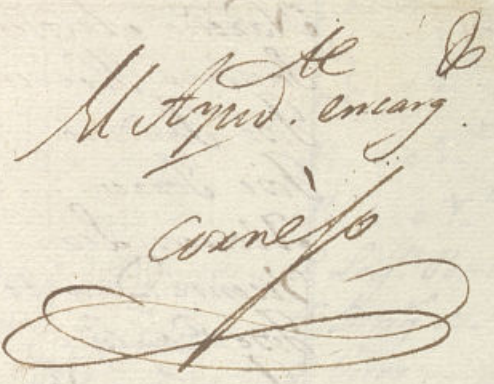 El Ayud.te encarg.do
Cornejo